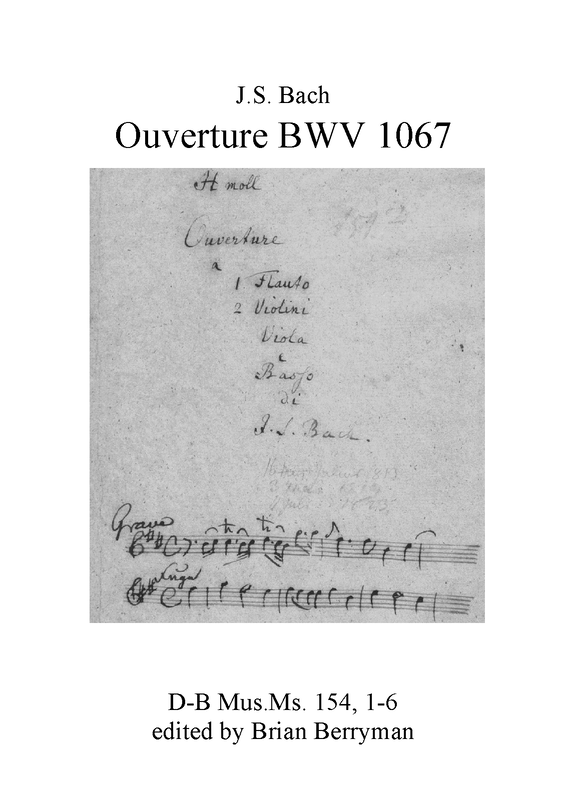 J.S. Bach
Ouverture BWV 1067
H moll
Ouverture
a
1 Flauto
2 Violini
Viola
e
Basso
di
J. S. Bach.
Grave
Fuga
D-B Mus.Ms. 154, 1-6
edited by Brian Berryman